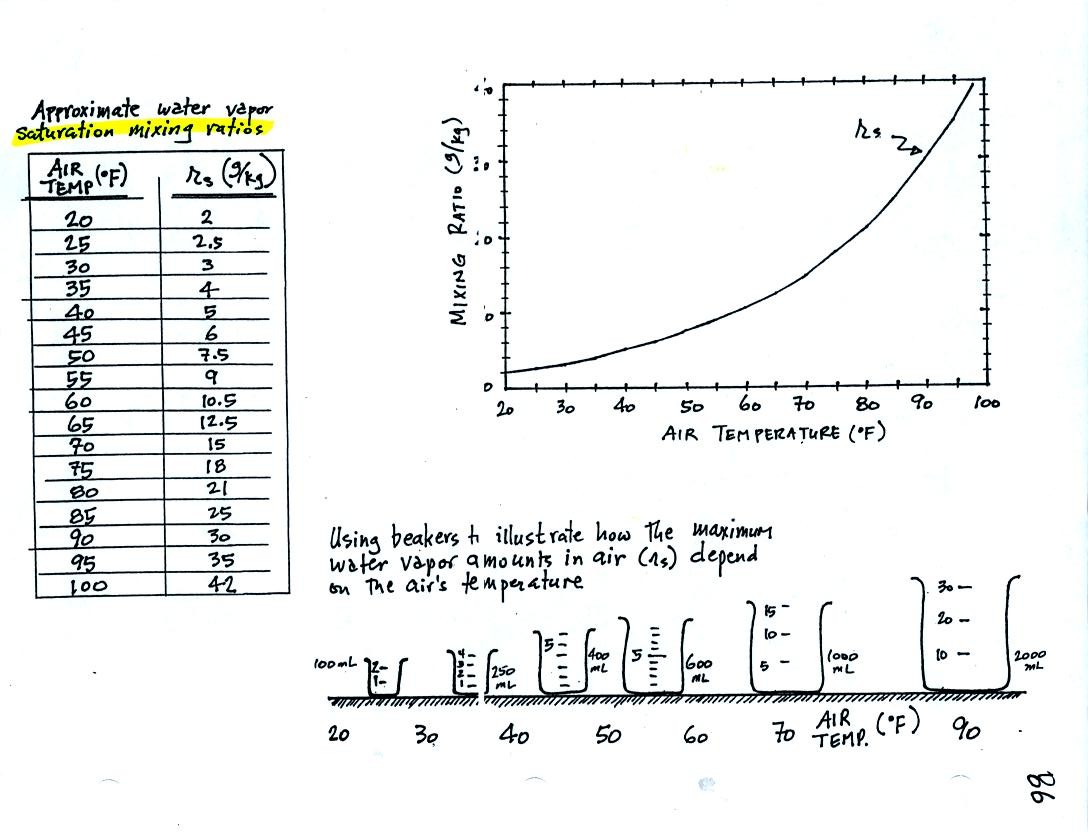 Approximate water vapor
saturation mixing ratios
AIR TEMP (°F) rs (g/kg)
20 2
25 2.5
30 3
35 4
40 5
45 6
50 7.5
55 9
60 10.5
65 12.5
70 15
75 18
80 21
85 25
90 30
95 35
100 42
MIXING RATIO (g/kg)
0
rs
20 30 40 50 60 70 80 90 100
AIR TEMPERATURE (°F)
Using beakers to illustrate how the maximum
water vapor amounts in air (rs) depend
on the air's temperature
100 mL
2
1
4
3
2
1
250 mL
5
400 mL
5
600 mL
15
10
5
1000 mL
30
20
10
2000 mL
20 30 40 50 60 70 AIR TEMP. (°F) 90
98